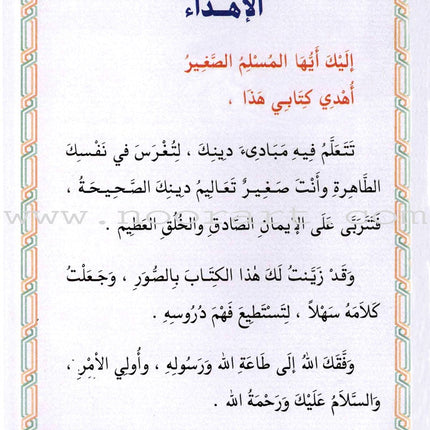 الإهداء
إلَيْكَ أَيُّهَا المُسْلِمُ الصَّغِيرُ
أُهْدِي كِتَابِي هَذَا ،
تَتَعَلَّمُ فِيهِ مَبَادِىءَ دِينِكَ ، لِتُغْرَسَ في نَفْسِكَ
الطَّاهِرةِ وأَنْتَ صَغِيرٌ تَعَالِيمُ دِينِكَ الصَّحِيحَةُ ،
فَتَتَرَبَّى عَلَى الإيمانِ الصَّادقِ والخُلُقِ العَظِيم .
وَقَدْ زَيَّنتُ لَكَ هٰذا الكِتَابَ بِالصُّوَرِ ، وَجَعَلْتُ
كَلاَمَهُ سَهْلاً ، لِتَسْتَطِيعَ فَهْمَ دُرُوسِهِ .
وَفَّقَكَ اللهُ إلَى طَاعَةِ الله وَرَسُولِهِ ، وأُولِي الأمْرِ ،
وَالسَّلاَمُ عَلَيْكَ وَرَحْمَةُ الله .